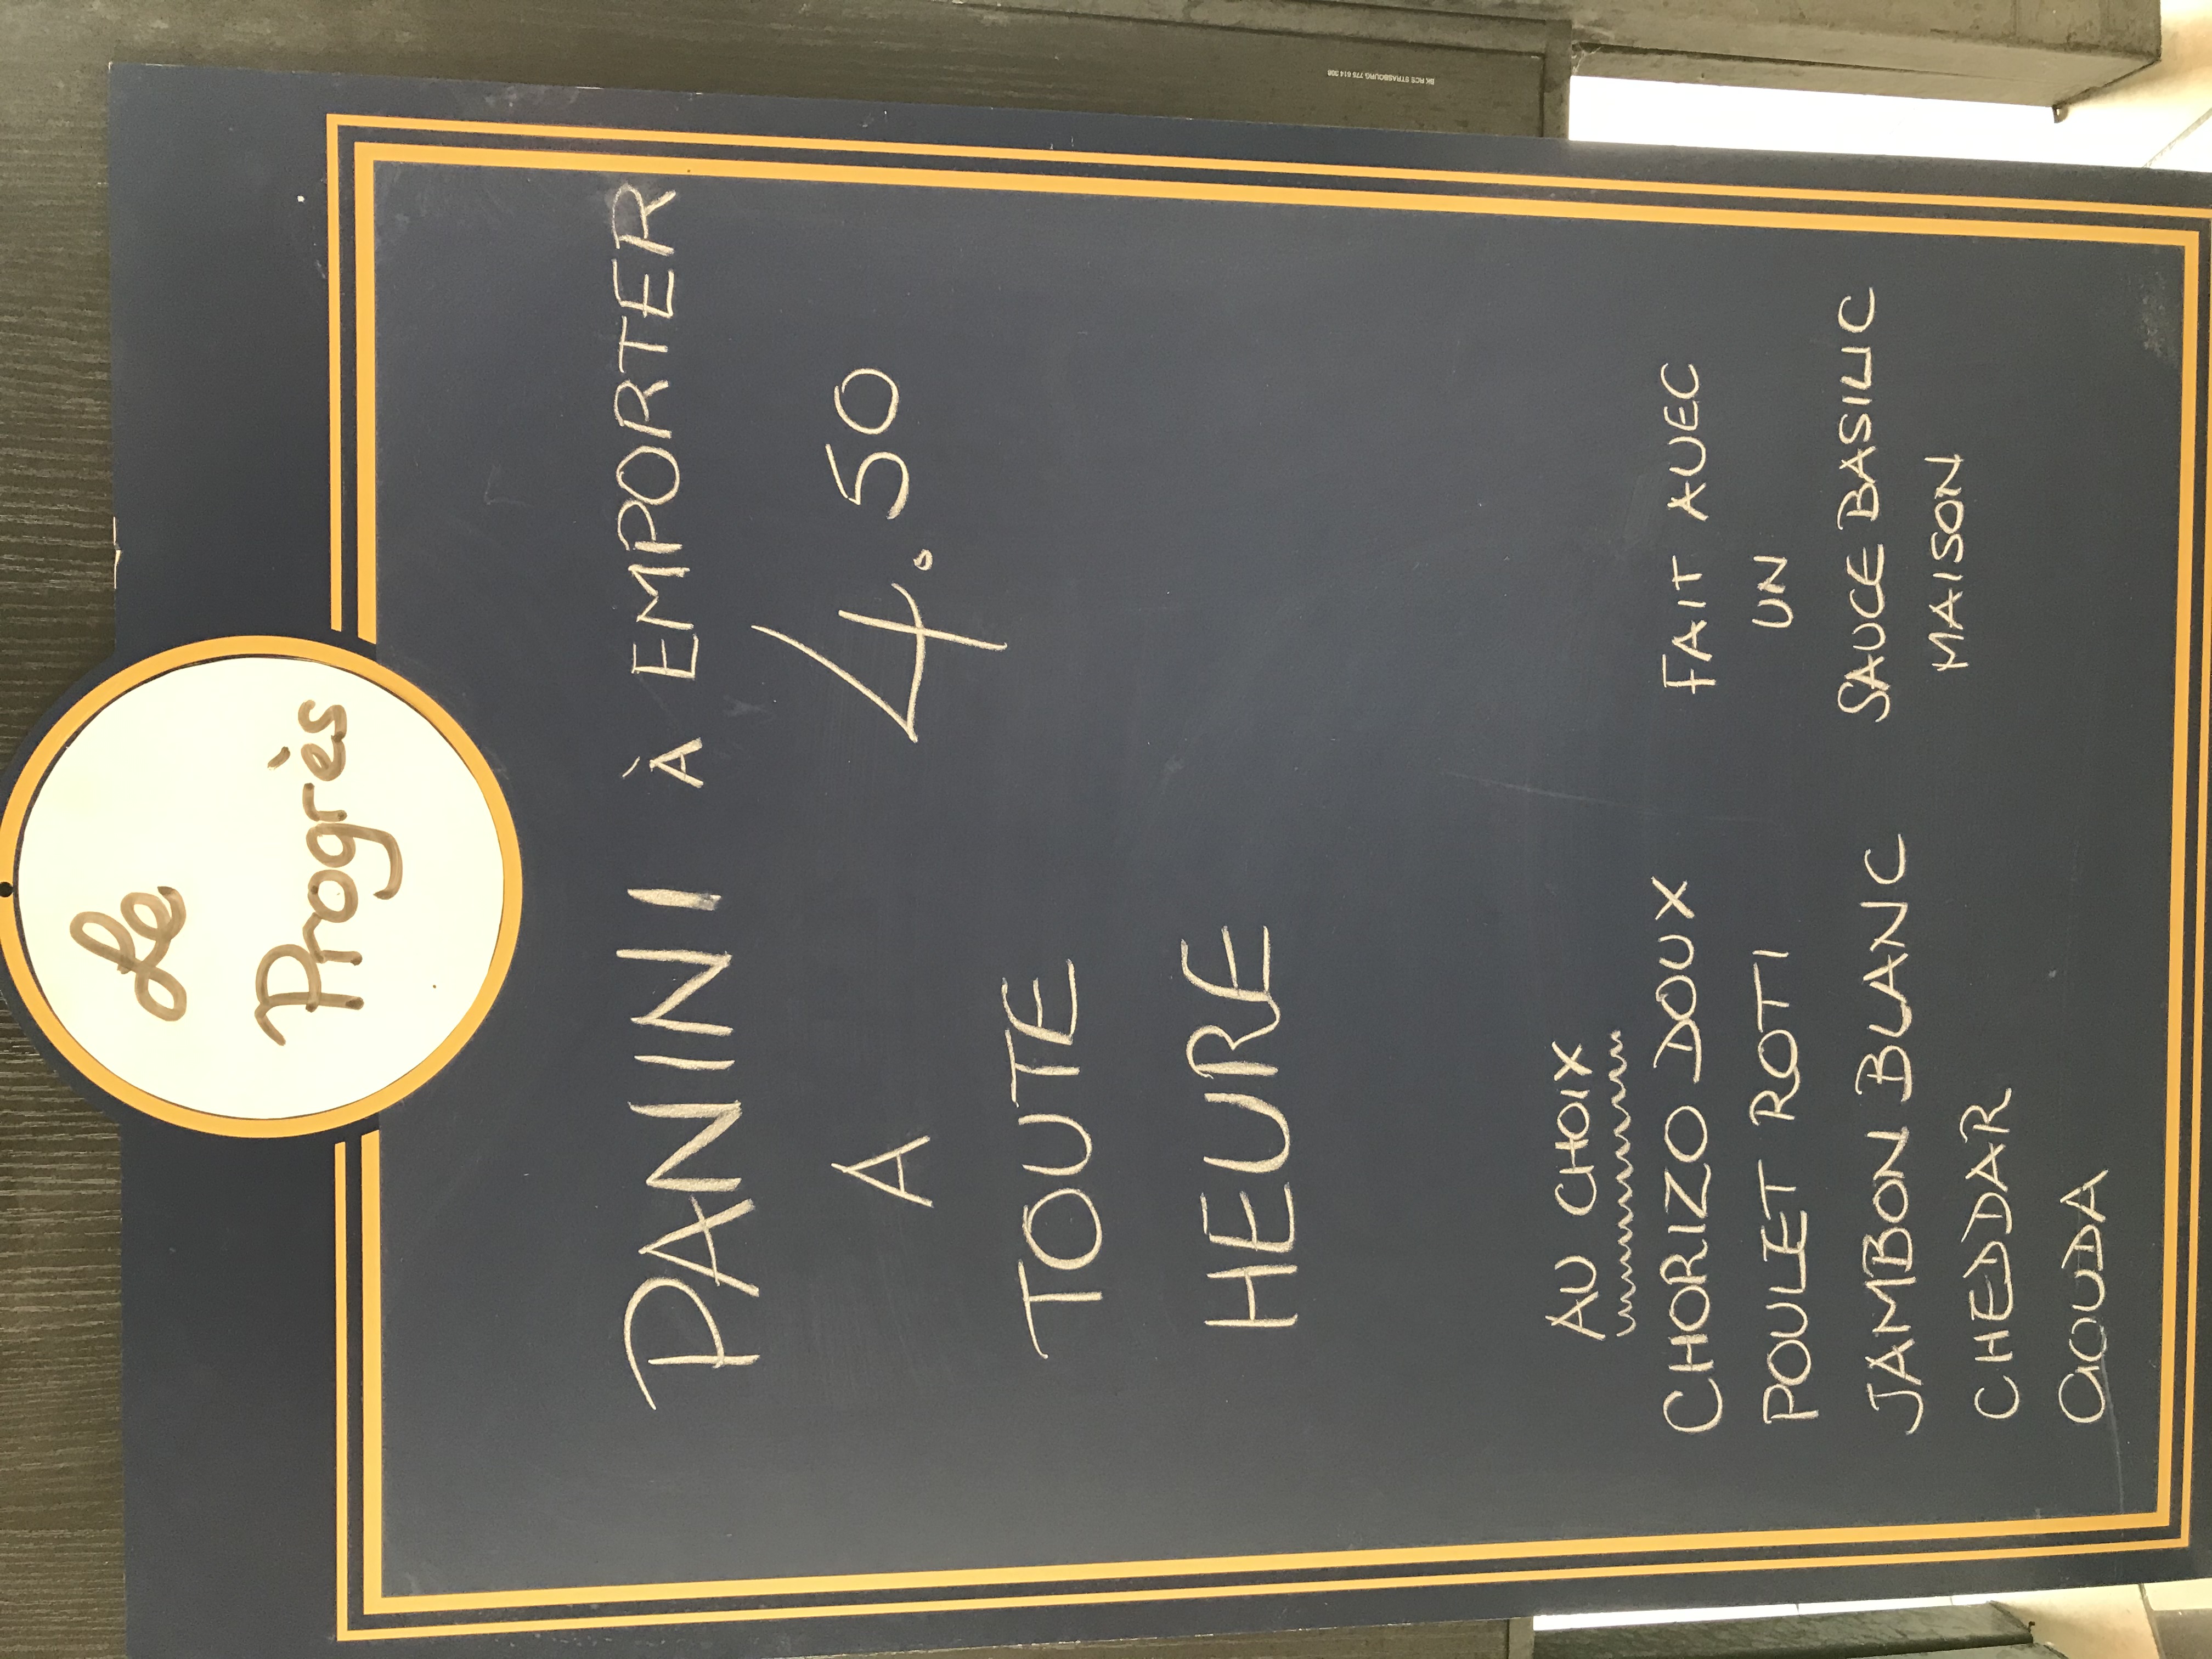 Le
Progrès
PANINI À EMPORTER
A 4.50
TOUTE
HEURE
AU CHOIX
CHORIZO DOUX
POULET ROTI
JAMBON BLANC
CHEDDAR
GOUDA
FAIT AVEC
UN
SAUCE BASILIC
MAISON
BK RCS STRASBOURG 775 614 308